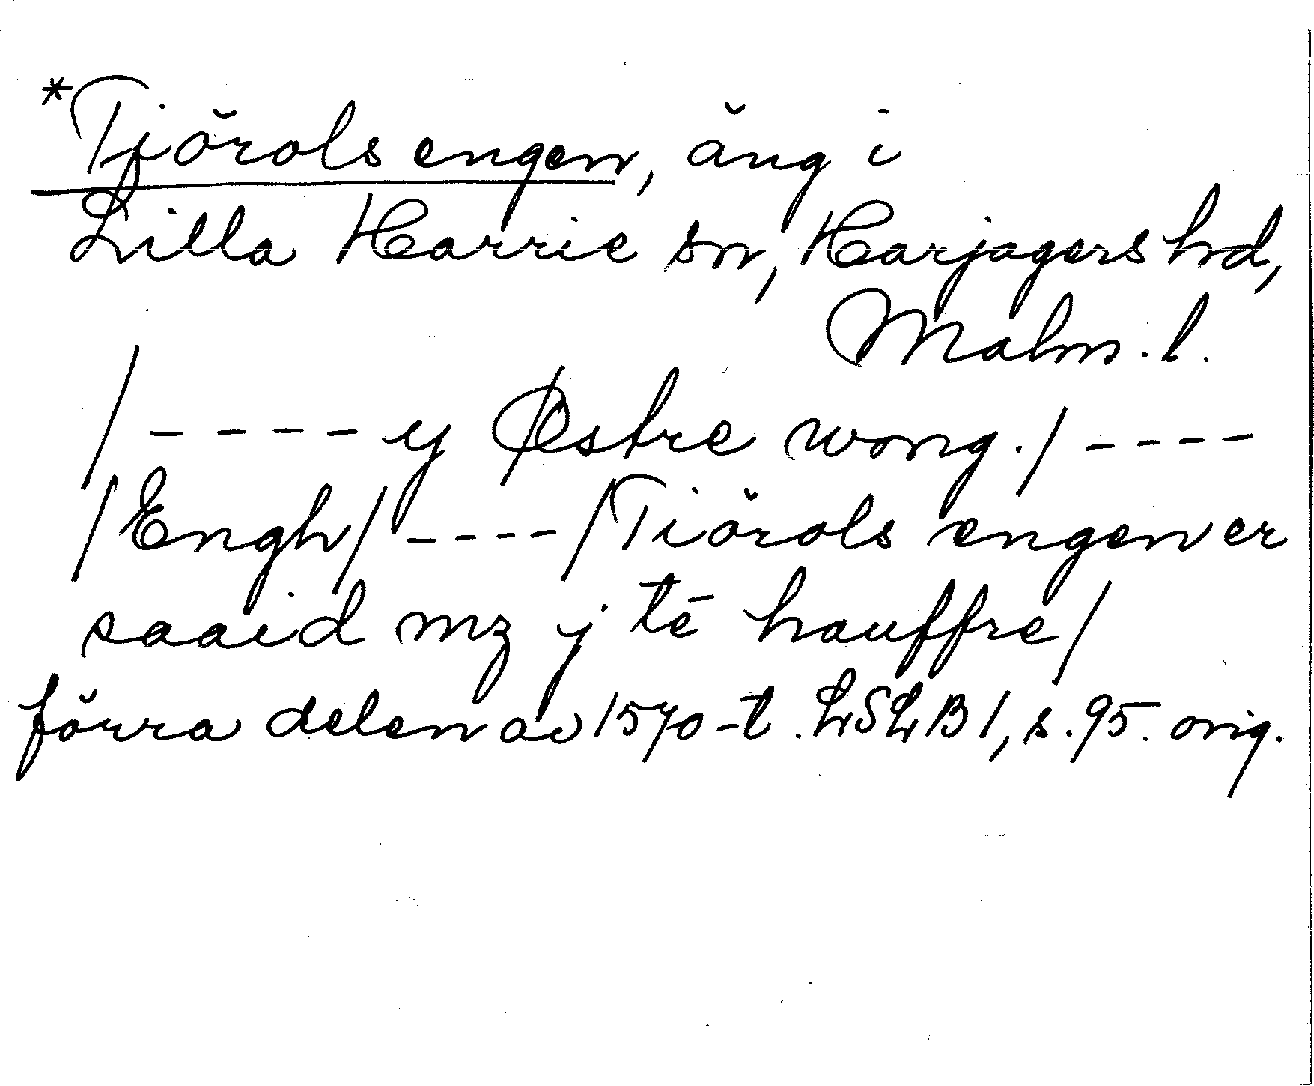 *Tjörols engen, äng i
Lilla Harrie sn, Harjagers hd,
Malm. l.
/ - - - - y Østre wong. / - - - -
/ Engh / - - - - / Tiörols engen er
saaid mz j tē hauffre /
förra delen av 1570-t. LSLB 1, s. 95. orig.